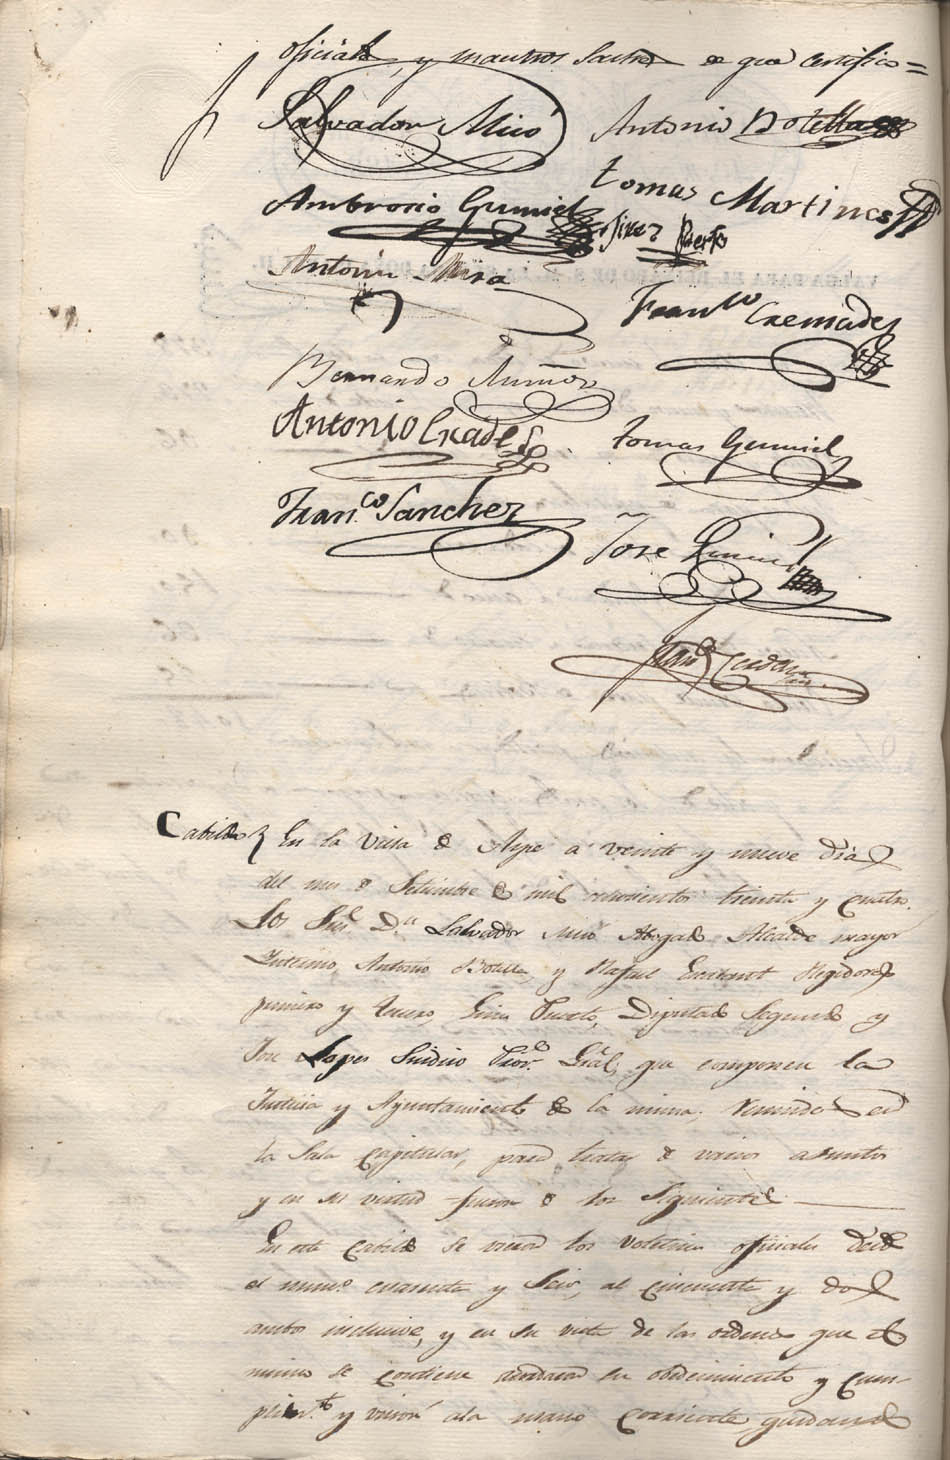 oficiales, y maestros Sastres de que certifico =
Salvador Micó Antonio Botella
Ambrosio Gumiel tomas Martines
Gines Puerto
Antonio Mira Fran.co Cremades
Bernardo Nuñes
Antonio Crades tomas Gumiel
Fran.co Sanchez
Jose Gumiel
Cabildo En la Villa de Aspe á veinte y nueve dias
del mes de Setiembre de mil ochocientos treinta y cuatro.
Los Sres. D.n Salvador Micó Abogado Alcalde mayor
Interino, Antonio Botella, y Rafael Regidores
primero y Tercero, Gines Puerto, Diputado Segundo y
Jose Lopes Sindico Pror. Gral, que componen la
Justicia y Ayuntamiento de la misma, reunidos en
la Sala Capitular, para tratar de varios asuntos
y en su virtud fueron de los siguientes
En este Cabildo se vieron los voletines oficiales desde
el num.o cuarenta y Seis, al cincuenta y dos
ambos inclusive, y en su vista de las ordenes que el
mismo se contiene acordaron su obedecimiento y Cum-
plim.to y union á la mano corriente, guardando